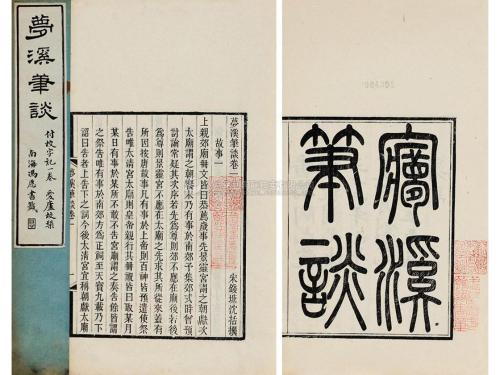 夢溪筆談
付校字記一卷
南海馮愿書籤
夢溪筆談卷一
宋錢塘沈括撰
故事一
上親郊廟冊文皆曰恭薦歲事先景靈宮謂之朝獻次
太廟謂之朝饗末乃有事於南郊予集郊式時曾預
討論常疑其次序若先為尊則郊不應在廟後若後
為尊則景靈宮不應在太廟之先求其所從來蓋有
所因按唐故事凡有事於上帝則百神皆預遣使祭
告唯太清宮太廟則皇帝親行其冊祝皆曰取某月
某日有事於某所不敢不告宮廟謂之奏告餘皆謂
之祭告唯有事於南郊方為正祠至天寶九載乃下
詔曰告者上告下之詞今後太清宮宜稱朝獻太廟
夢溪
筆談